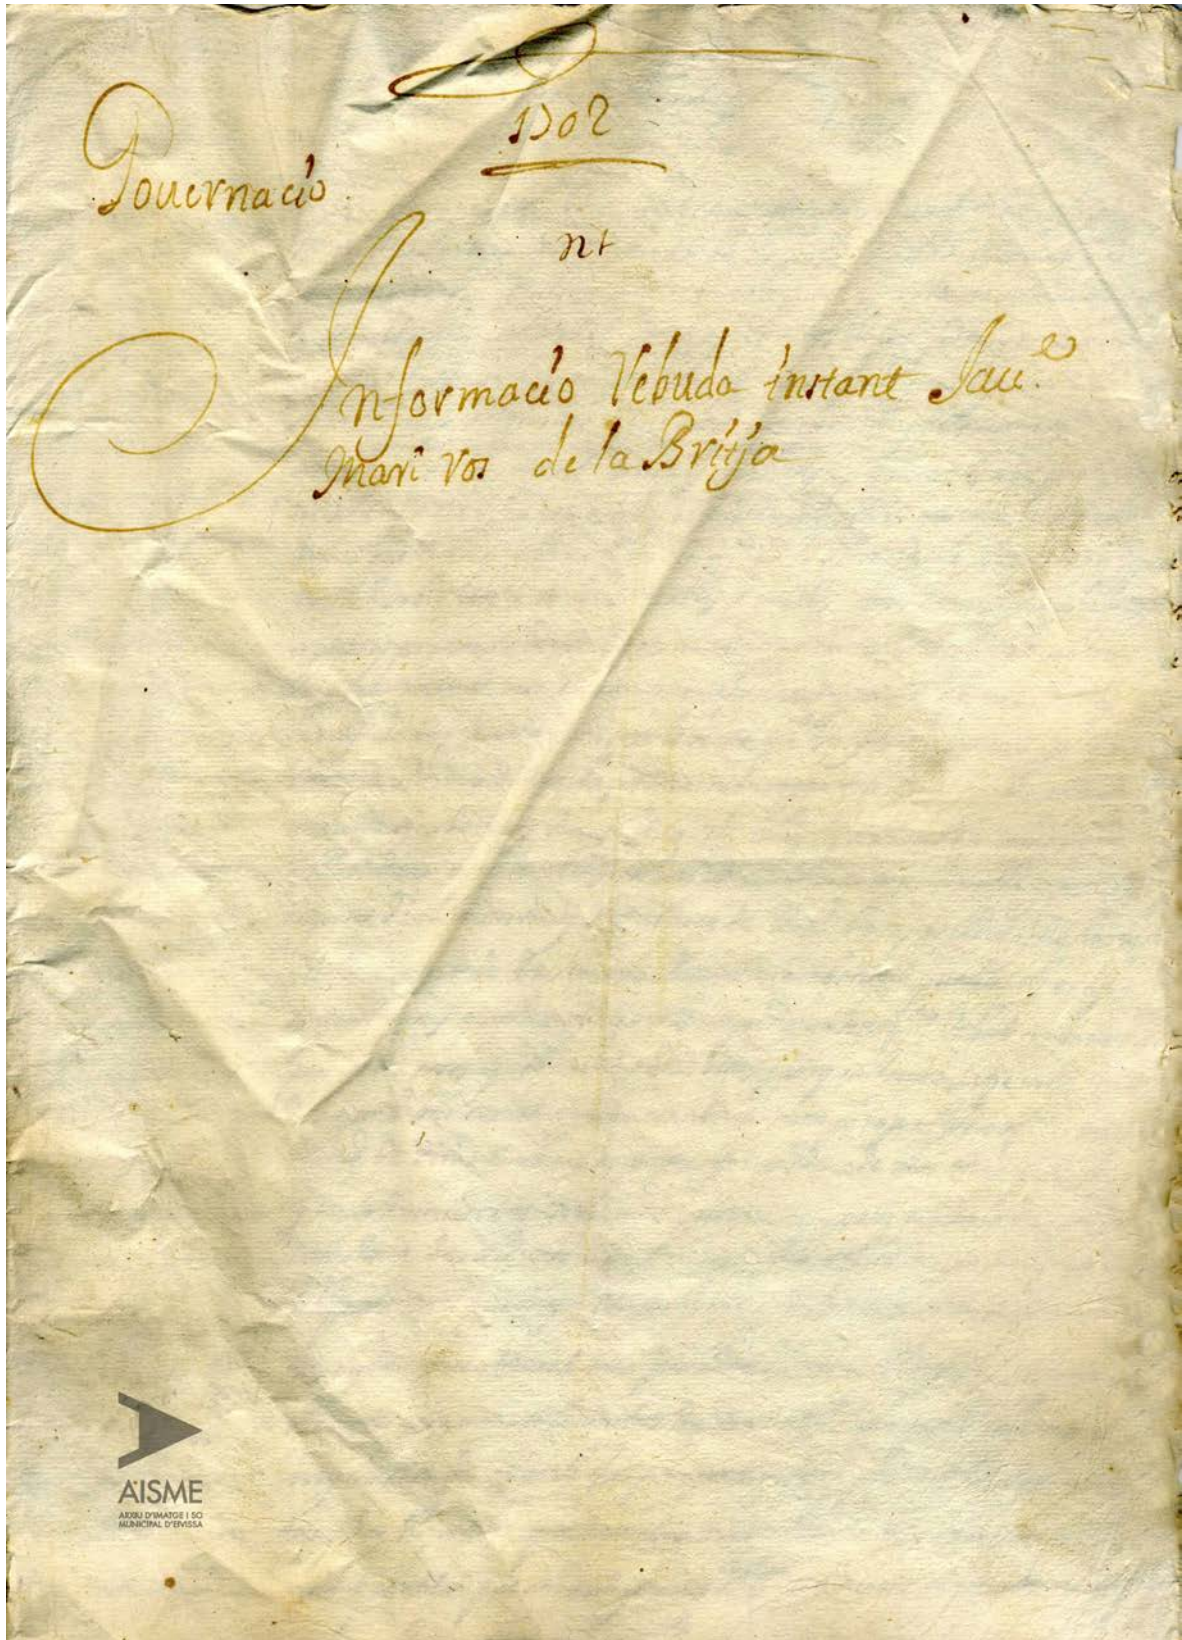 1702
Governacio
nt
Informacio Rebuda instant Jau.e
Mari ros de la Britja
AISME
ARXIU D'IMATGE I SO
MUNICIPAL D'EIVISSA